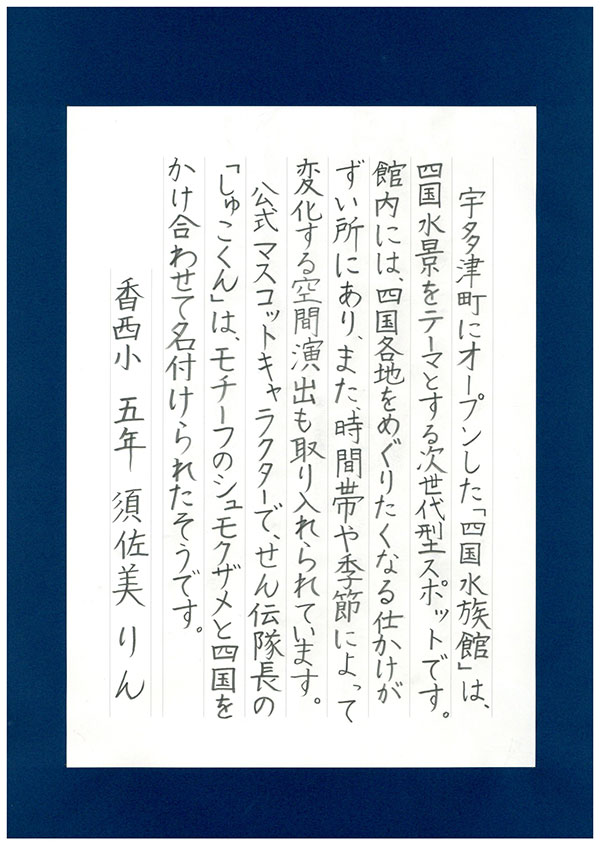 宇多津町にオープンした「四国水族館」は、
四国水景をテーマとする次世代型スポットです。
館内には、四国各地をめぐりたくなる仕かけが
ずい所にあり、また、時間帯や季節によって
変化する空間演出も取り入れられています。
公式マスコットキャラクターで、せん伝隊長の
「しゅこくん」は、モチーフのシュモクザメと四国を
かけ合わせて名付けられたそうです。
香西小 五年 須佐美りん